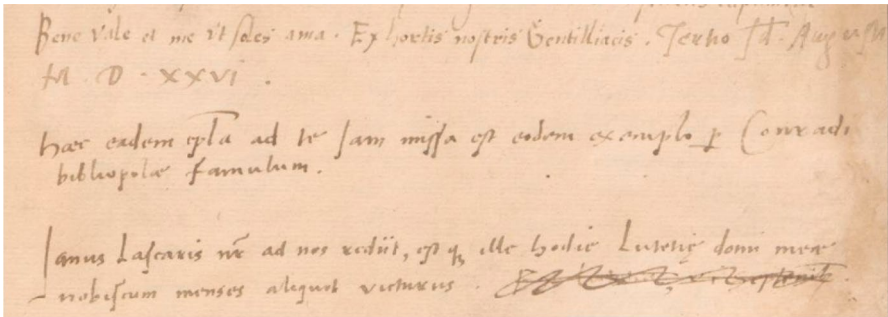 Bene vale et me ut soles ama. Ex hortis nostris Gentilliacis. Tertio Id. Augusti
M. D. XXVI.
Haec eadem epl̃a ad te Iam missa est eodem exemplo ꝑ Conradi
bibliopolæ famulum.
Ianus Lascaris nr̃ ad nos rediit, est qꝫ ille hodie Lutetię domi meæ
nobiscum menses aliquot victurus.